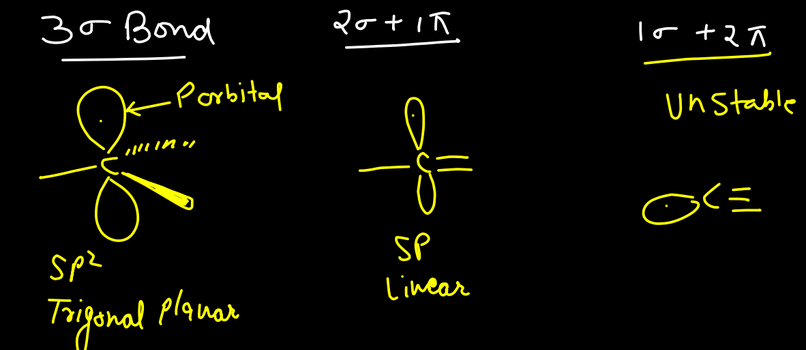 3σ Bond
P orbital
C
SP²
Trigonal Planar
2σ + 1π
C
SP
Linear
1σ + 2π
Unstable
C≡